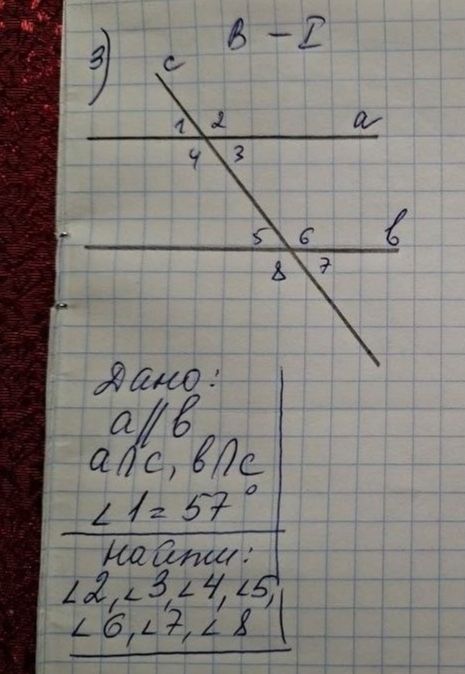 В - I
3)
c
1 2 a
4 3
5 6 в
8 7
Дано:
a // в
a∩c, в∩c
∠1 = 57°
Найти:
∠2, ∠3, ∠4, ∠5,
∠6, ∠7, ∠8